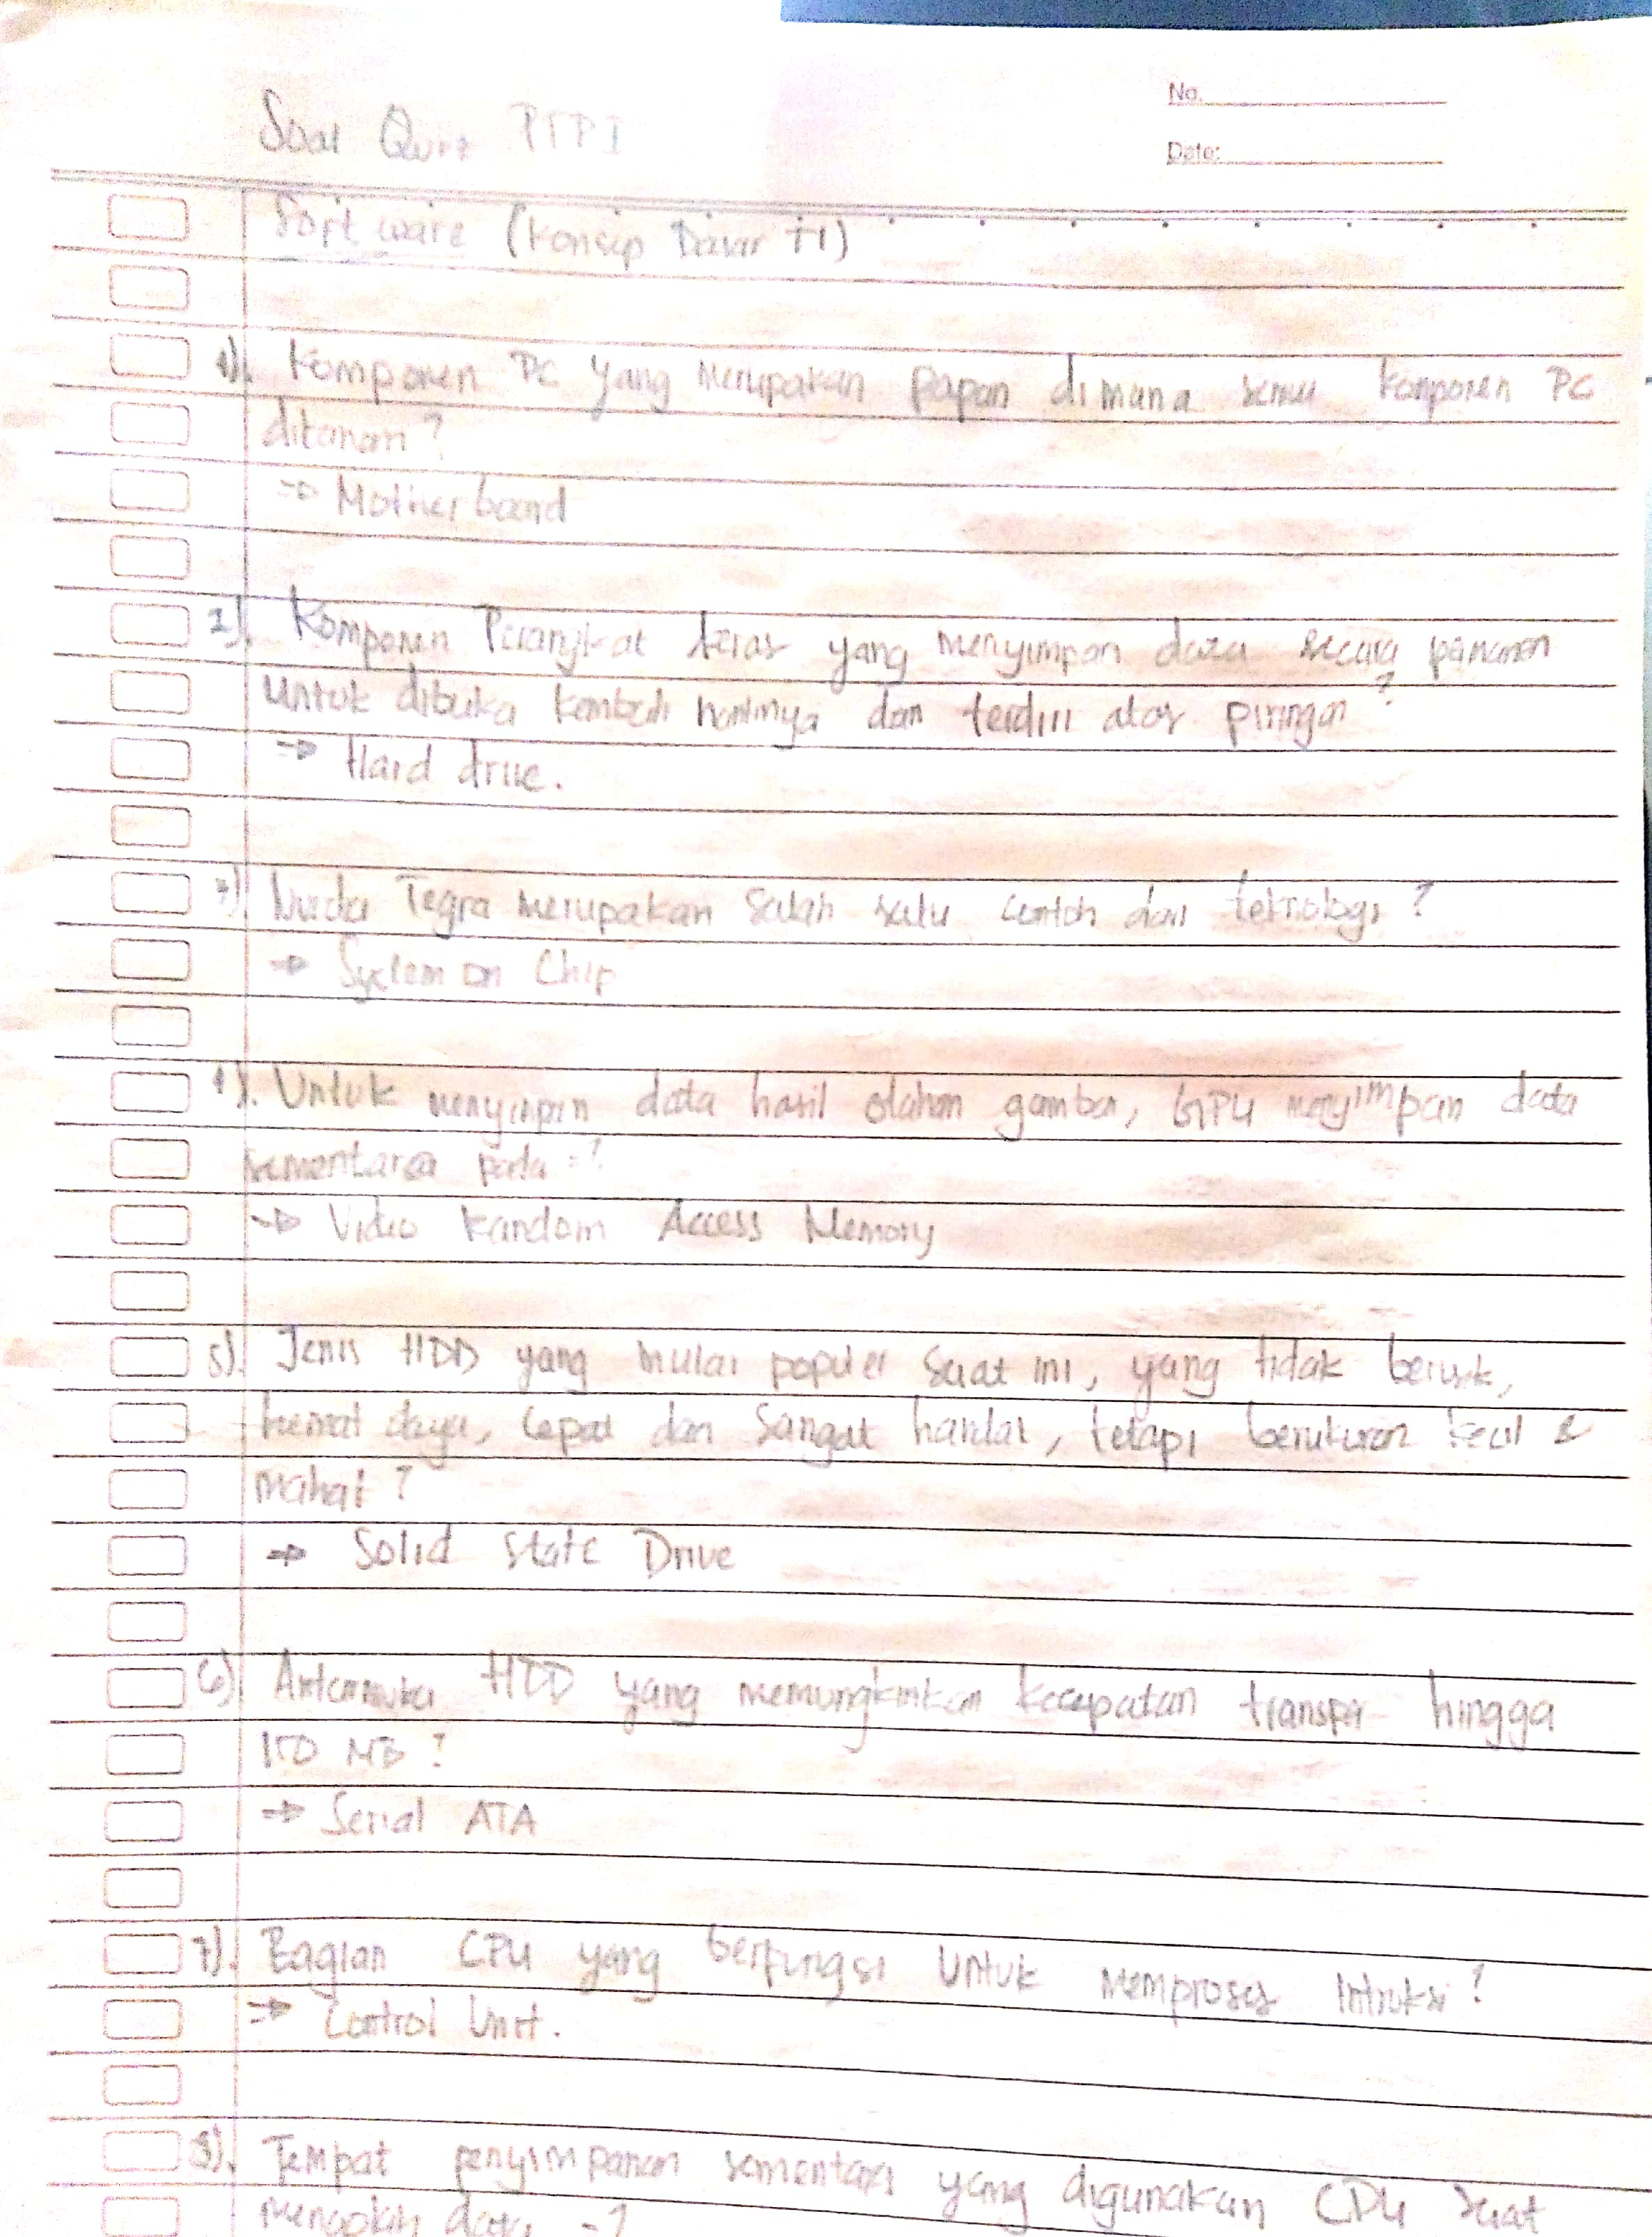 No.
Date:
Soal Quiz PTPI
Software (Konsep Dasar TI)
1). Komponen PC yang merupakan papan dimana semu komponen PC
ditanam?
→ Motherboard
2). Komponen Perangkat keras yang menyimpan data secara
untuk dibuka kembali nantinya dan terdiri atas piringan?
→ Hard drive.
3). Nvidia Tegra merupakan salah satu contoh dari teknologi?
→ System on Chip
4). Untuk menyimpan data hasil olahan gambar, GPU menyimpan data
sementara pada =?
→ Video Random Access Memory
5). Jenis HDD yang mulai populer saat ini, yang tidak berisik,
hemat daya, cepat dan sangat handal, tetapi berukuran kecil &
mahal?
→ Solid State Drive
6). Antarmuka HDD yang memungkinkan kecepatan transper hingga
150 MB?
→ Serial ATA
7). Bagian CPU yang berfungsi untuk memproses intruksi?
→ Control Unit.
8). Tempat penyimpanan sementara yang digunakan CPU saat
mengolah data =?